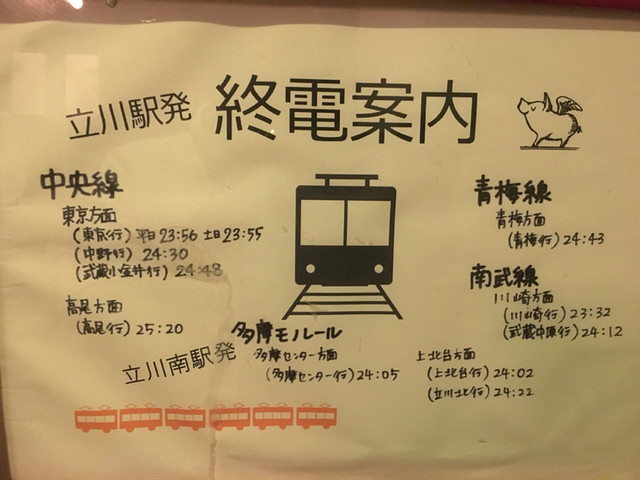 立川駅発 終電案内
中央線
東京方面
(東京行) 平日 23:56 土日 23:55
(中野行) 24:30
(武蔵小金井行) 24:48
高尾方面
(高尾行) 25:20
青梅線
青梅方面
(青梅行) 24:43
南武線
川崎方面
(川崎行) 23:32
(武蔵中原行) 24:12
多摩モノルール
立川南駅発
多摩センター方面
(多摩センター行) 24:05
上北台方面
(上北台行) 24:02
(立川北行) 24:22